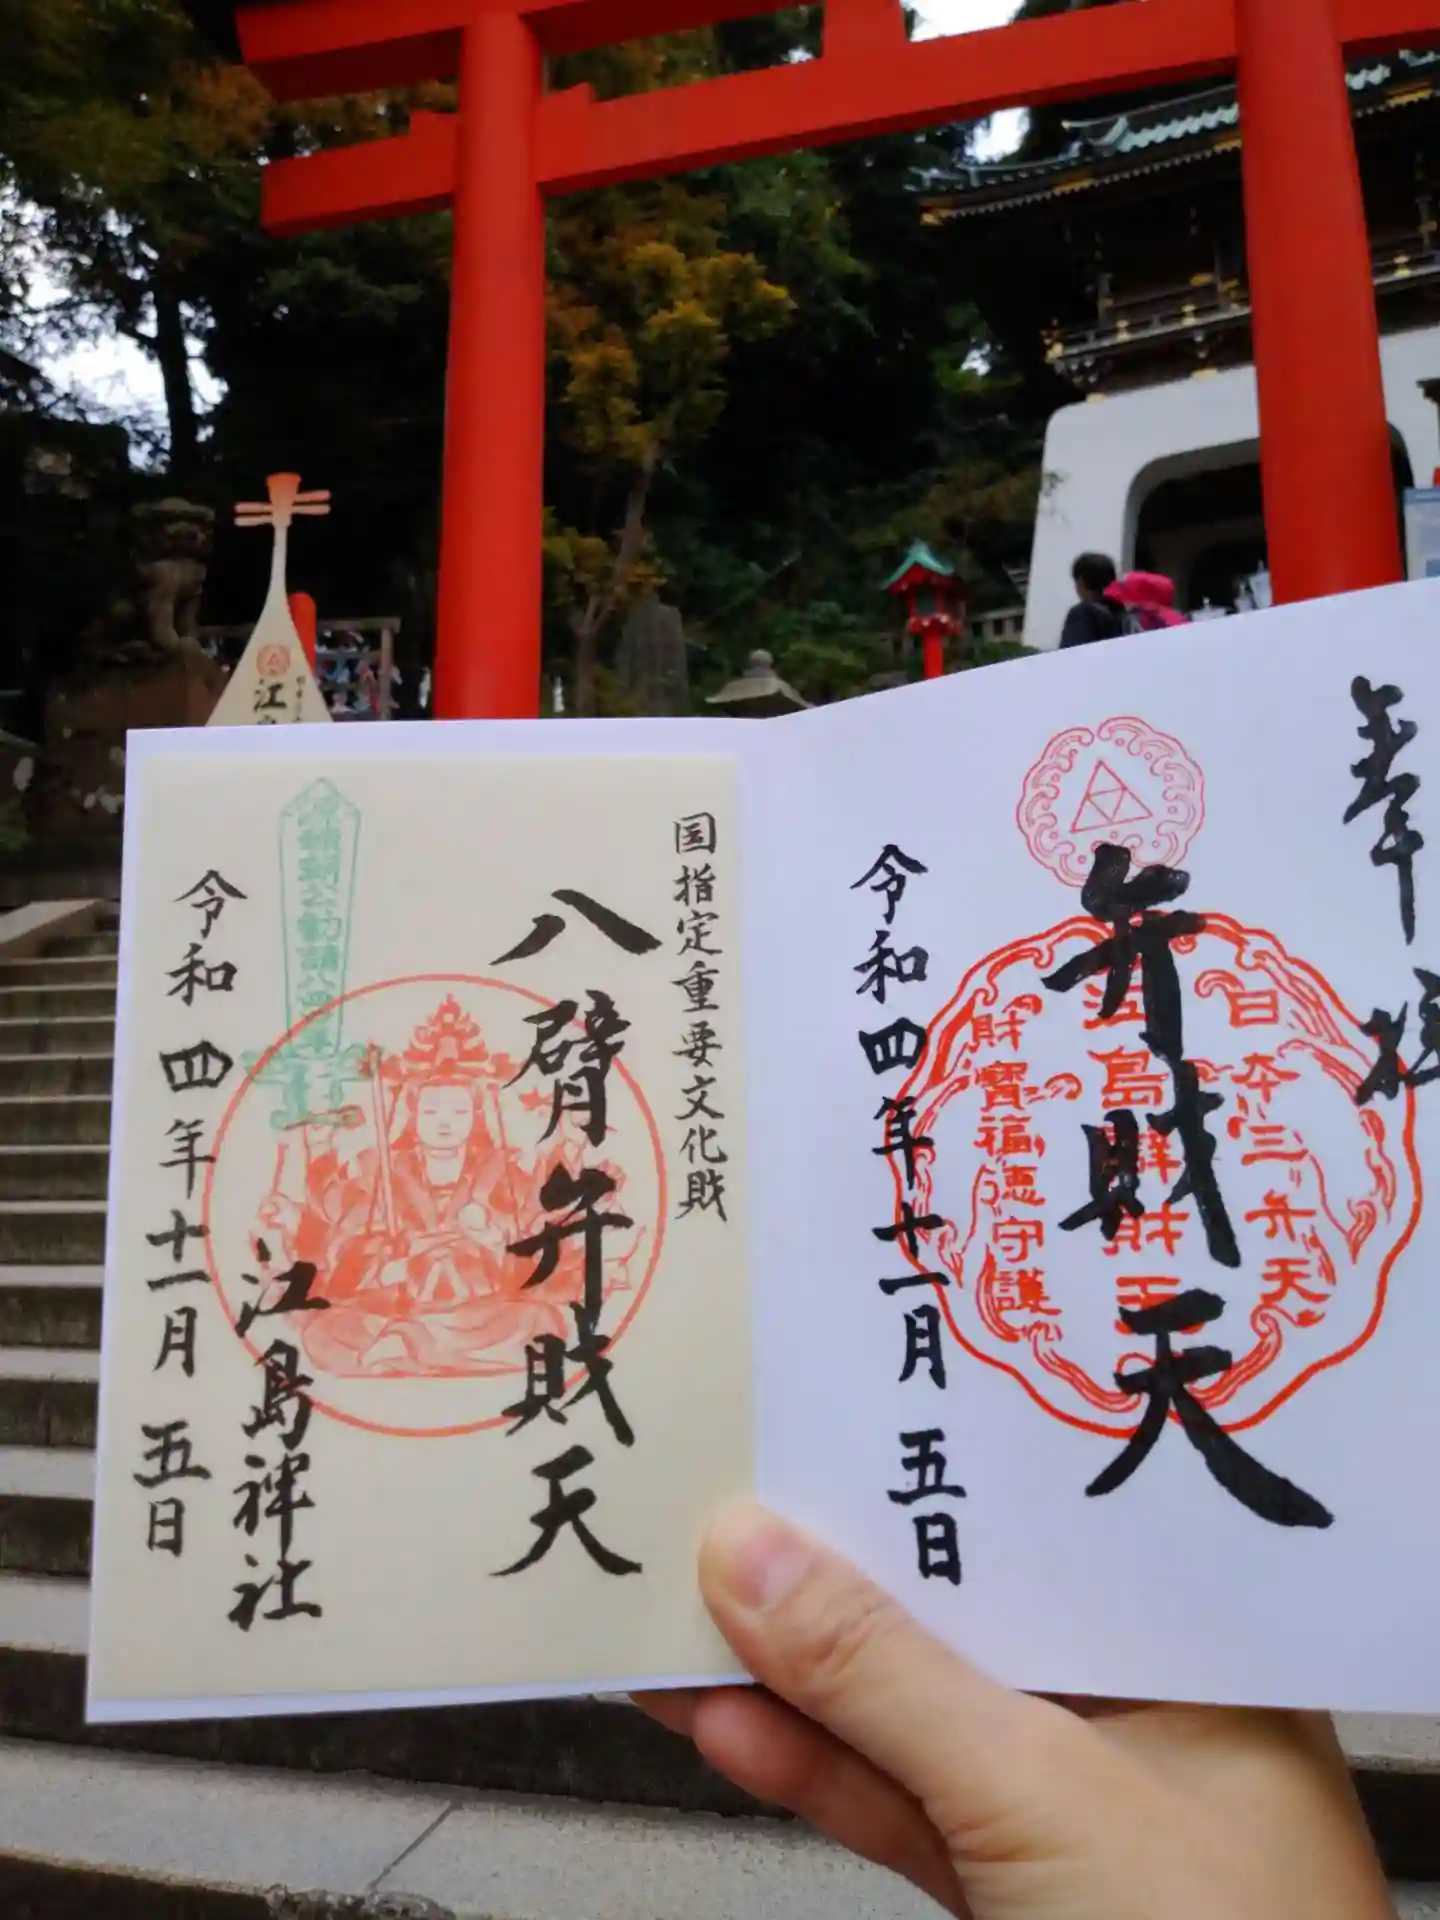 奉拝
弁財天
日本三弁天
江島辨財天
財寶福徳守護
令和四年十一月五日
国指定重要文化財
八臂弁財天
江島神社
令和四年十一月五日
江